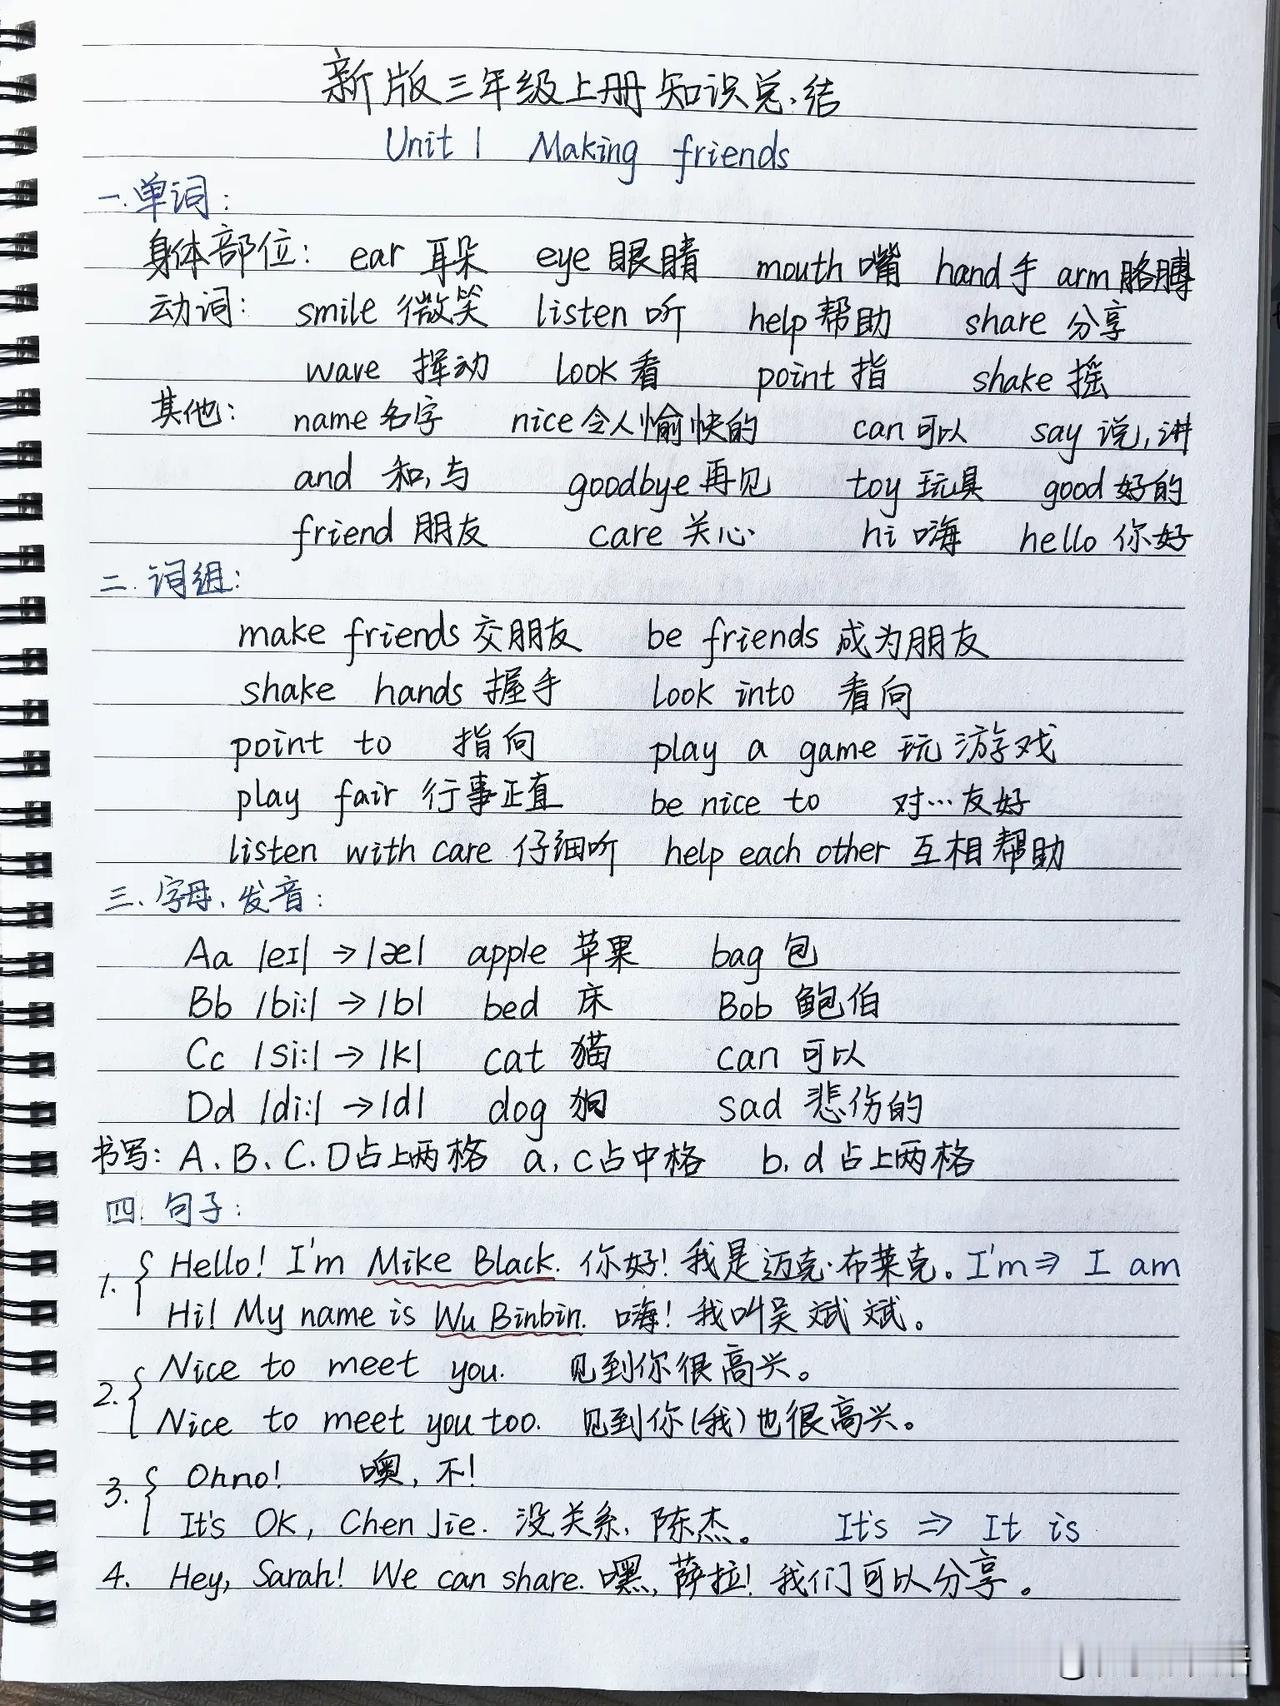 新版三年级上册知识总结
Unit 1 Making friends
一.单词:
身体部位: ear 耳朵 eye 眼睛 mouth 嘴 hand 手 arm 胳膊
动词: smile 微笑 listen 听 help 帮助 share 分享
wave 挥动 look 看 point 指 shake 摇
其他: name 名字 nice 令人愉快的 can 可以 say 说,讲
and 和,与 goodbye 再见 toy 玩具 good 好的
friend 朋友 care 关心 hi 嗨 hello 你好
二.词组:
make friends 交朋友 be friends 成为朋友
shake hands 握手 look into 看向
point to 指向 play a game 玩游戏
play fair 行事正直 be nice to 对…友好
listen with care 仔细听 help each other 互相帮助
三、字母、发音:
Aa /eɪ/ → /æ/ apple 苹果 bag 包
Bb /bi:/ → /b/ bed 床 Bob 鲍伯
Cc /si:/ → /k/ cat 猫 can 可以
Dd /di:/ → /d/ dog 狗 sad 悲伤的
书写: A、B、C、D占上两格 a、c占中格 b、d占上两格
四.句子:
1. { Hello! I'm Mike Black. 你好!我是迈克·布莱克。 I'm ⇒ I am
Hi! My name is Wu Binbin. 嗨!我叫吴斌斌。
2. { Nice to meet you. 见到你很高兴。
Nice to meet you too. 见到你(我)也很高兴。
3. { Oh no! 噢,不!
It's OK, Chen Jie. 没关系,陈杰。 It's ⇒ It is
4. Hey, Sarah! We can share. 嘿,萨拉!我们可以分享。